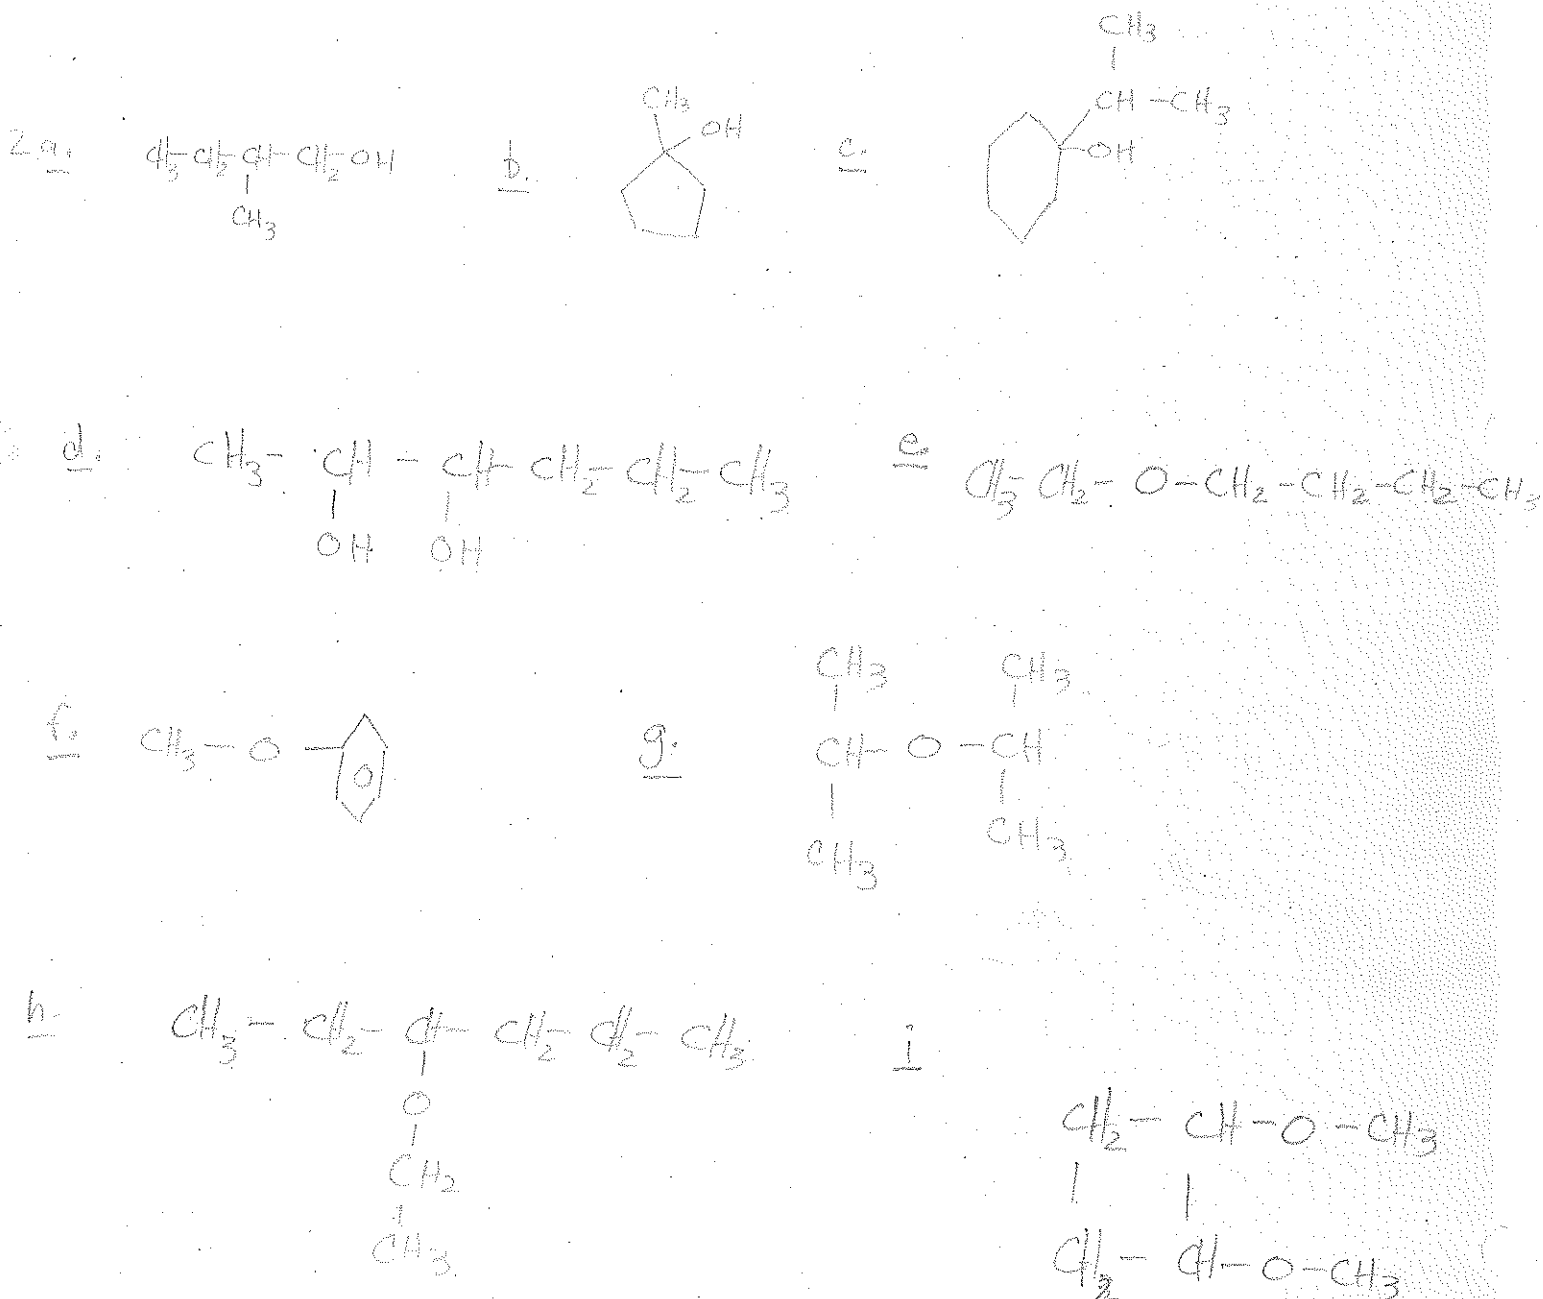 2.a. CH3-CH2-CH-CH2-OH
CH3
b.
CH3
OH
c.
CH3
CH-CH3
OH
d. CH3-CH-CH-CH2-CH2-CH3
OH OH
e. CH3-CH2-O-CH2-CH2-CH2-CH3
f. CH3-O-
g.
CH3 CH3
CH-O-CH
CH3 CH3
h. CH3-CH2-CH-CH2-CH2-CH3
O
CH2
CH3
i
CH2-CH-O-CH3
CH2-CH-O-CH3